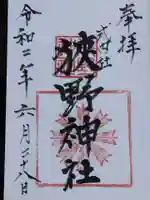 奉拝
式内社
狹野神社
令和二年六月二十八日